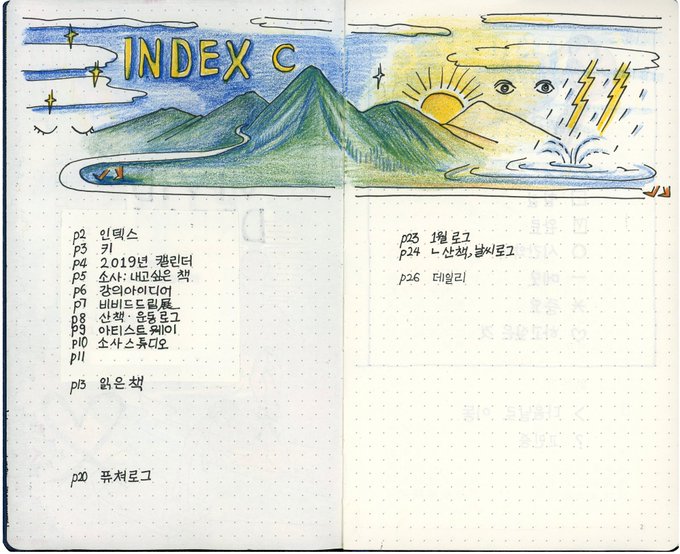 INDEX C
p2 인덱스
p3 키
p4 2019년 캘린더
p5 소사: 내고싶은 책
p6 강의아이디어
p7 비비드드림展
p8 산책·운동로그
p9 아티스트웨이
p10 소사스튜디오
p11
p13 읽은 책
p20 퓨쳐로그
p23 1월로그
p24 ㄴ산책,날씨로그
p26 데일리